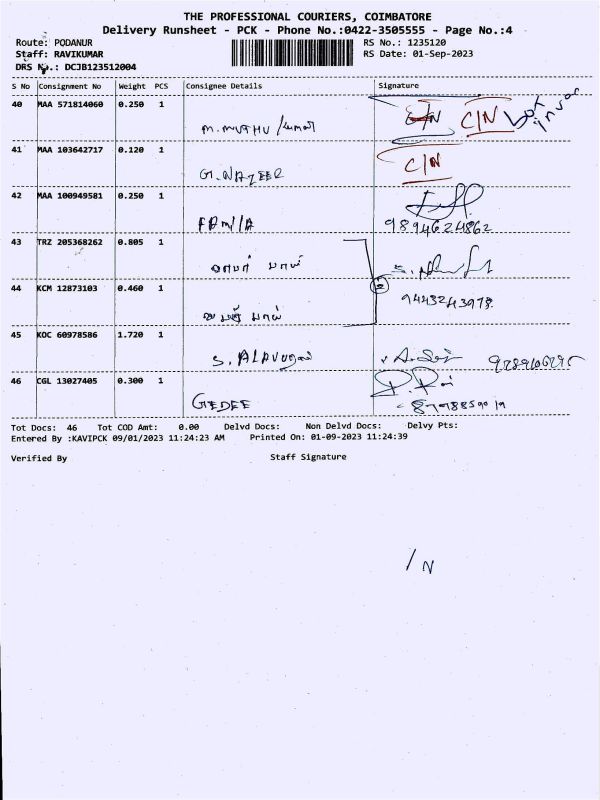 THE PROFESSIONAL COURIERS, COIMBATORE
Delivery Runsheet - PCK - Phone No.:0422-3505555 - Page No.:4
Route: PODANUR RS No.: 1235120
Staff: RAVIKUMAR RS Date: 01-Sep-2023
DRS No.: DCJB123512004
S No Consignment No Weight PCS Consignee Details Signature
40 MAA 571814060 0.250 1
M.MUTHU C/N C/N
41 MAA 103642717 0.120 1
G.NAZEER C/N
42 MAA 100949581 0.250 1
9894624862
43 TRZ 205368262 0.805 1
44 KCM 12873103 0.460 1
9443243978
45 KOC 60978586 1.720 1
46 CGL 13027405 0.300 1
GEDEE
Tot Docs: 46 Tot COD Amt: 0.00 Delvd Docs: Non Delvd Docs: Delvy Pts:
Entered By :KAVIPCK 09/01/2023 11:24:23 AM Printed On: 01-09-2023 11:24:39
Verified By Staff Signature
/N